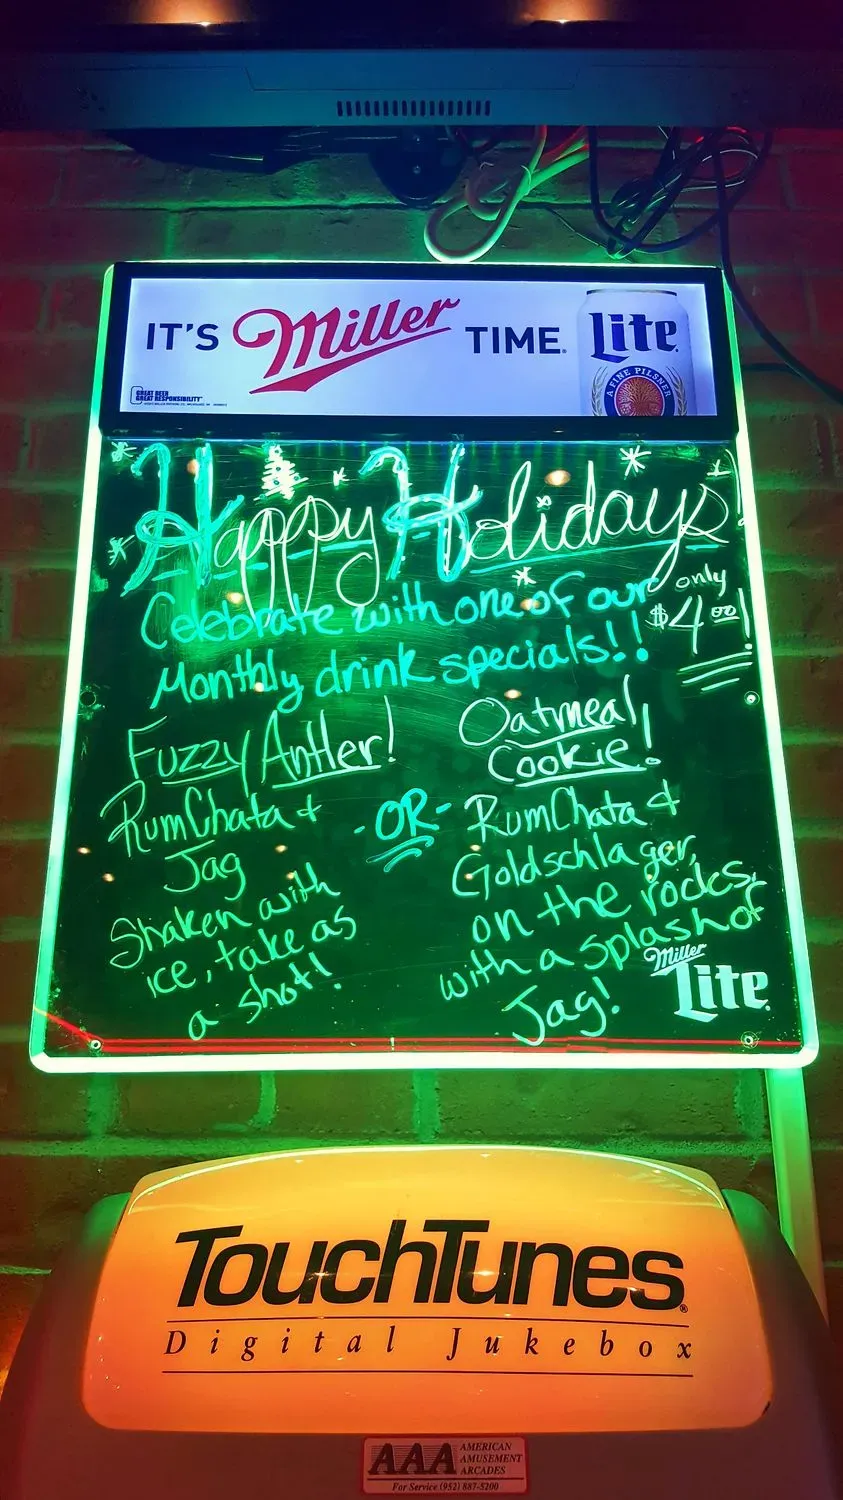 IT'S Miller TIME.
Lite
A FINE PILSNER
GREAT BEER
GREAT RESPONSIBILITY®
Happy Holidays!
Celebrate with one of our
Monthly drink specials!!
only
$4.00!
Fuzzy Antler!
RumChata +
Jag
Shaken with
ice, take as
a shot!
-OR-
Oatmeal
Cookie!
RumChata &
Goldschlager,
on the rocks,
with a splash of
Jag!
Miller
Lite
TouchTunes®
Digital Jukebox
AAA AMERICAN
AMUSEMENT
ARCADES
For Service (952) 887-5200